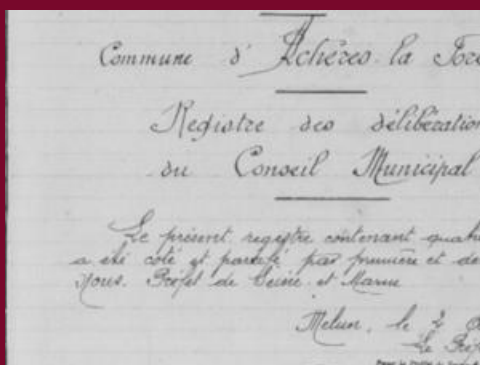 Commune d'Achères la Forê
Registre des délibération
du Conseil Municipal
Le présent registre contenant quatre
a été coté et parafé par première et de
Nous. Préfet de Seine et Marne
Melun, le 2
Le Préf